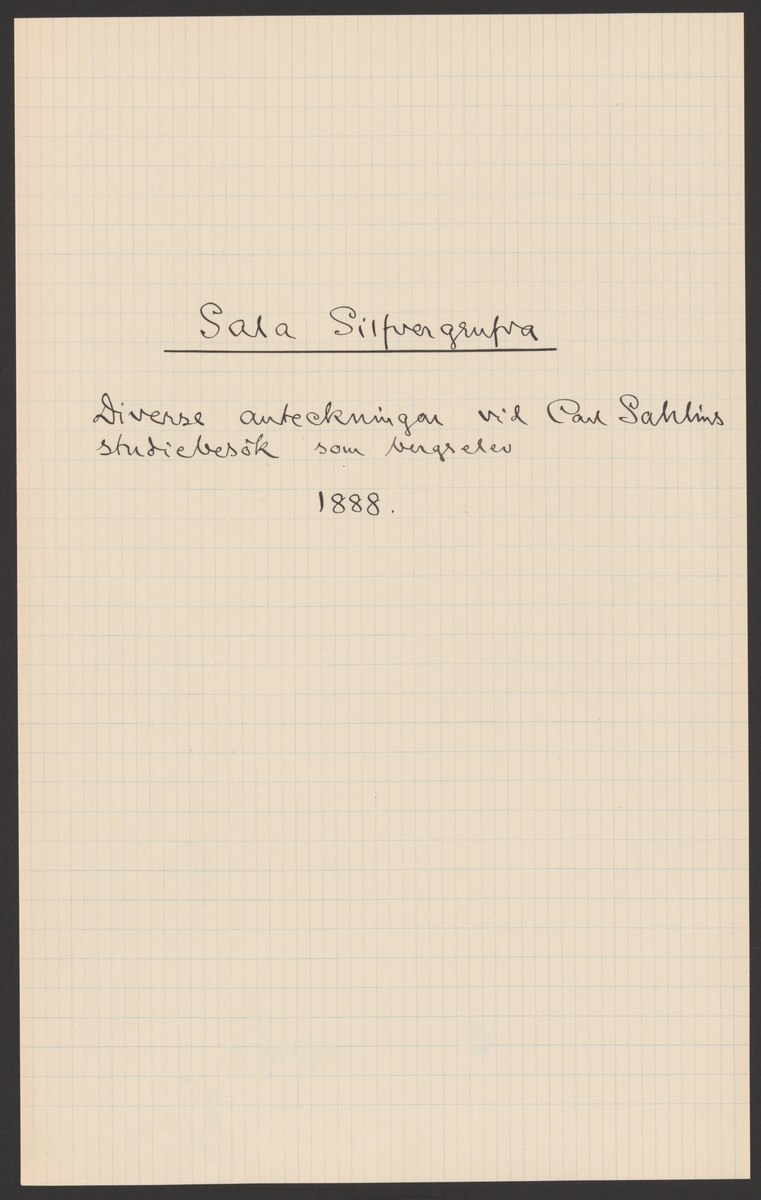 Sala Silfvergrufva
Diverse anteckningar vid Carl Sahlins
studiebesök som bergselev
1888.